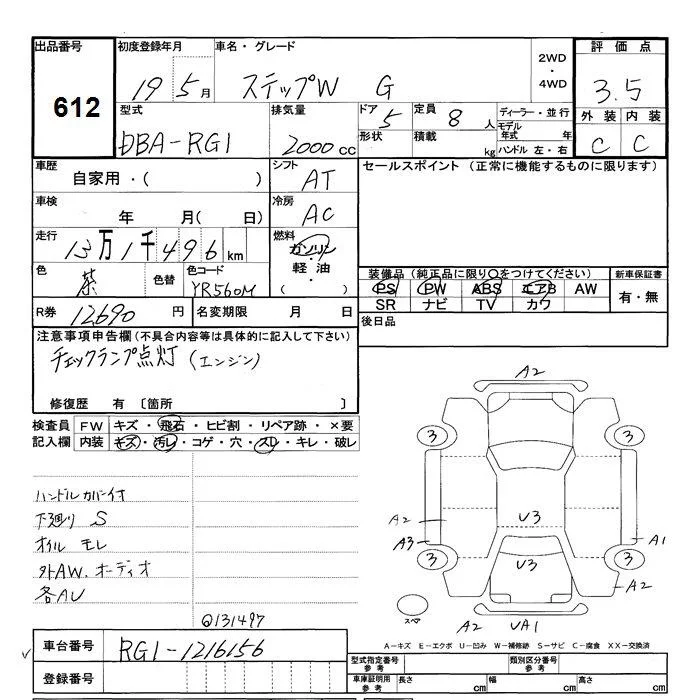 出品番号 初度登録年月 車名・グレード 評価点
612 19 5月 ステップW G 2WD・4WD 3.5
型式 排気量 ドア 5 定員 8人 ディーラー・並行 外装 内装
DBA-RG1 2000cc 形状 積載 kg モデル年式 年 C C
ハンドル 左・右
車歴 シフト セールスポイント (正常に機能するものに限ります)
自家用・( ) AT
車検 冷房
年 月( 日) AC
走行 燃料
13万1千496km ガソリン・軽油 ( )
色 色替 色コード 装備品 (純正品に限り○をつけてください) 新車保証書
茶 YR560M PS PW ABS エアB AW 有・無
SR ナビ TV カワ
R券 12690円 名変期限 月 日 後日品
注意事項申告欄 (不具合内容等は具体的に記入して下さい)
チェックランプ点灯 (エンジン)
修復歴 有 〔箇所 〕
検査員 FW キズ・飛石・ヒビ割・リペア跡・×要
記入欄 内装 キズ・汚レ・コゲ・穴・スレ・キレ・破レ
ハンドルカバー付
下廻り S
オイル モレ
外AW.オーディオ
各AU
@131497
A2
3 3
A2 U3
A3 A1
3 U3 3
A2
スペ
A2 UA1
A-キズ E-エクボ U-凹み W-補修跡 S-サビ C-腐食 XX-交換済
車台番号 RG1-1216156
登録番号
型式指定番号 参考 類別区分番号 参考
車庫証明用 参考 長さ cm 幅 cm 高さ cm